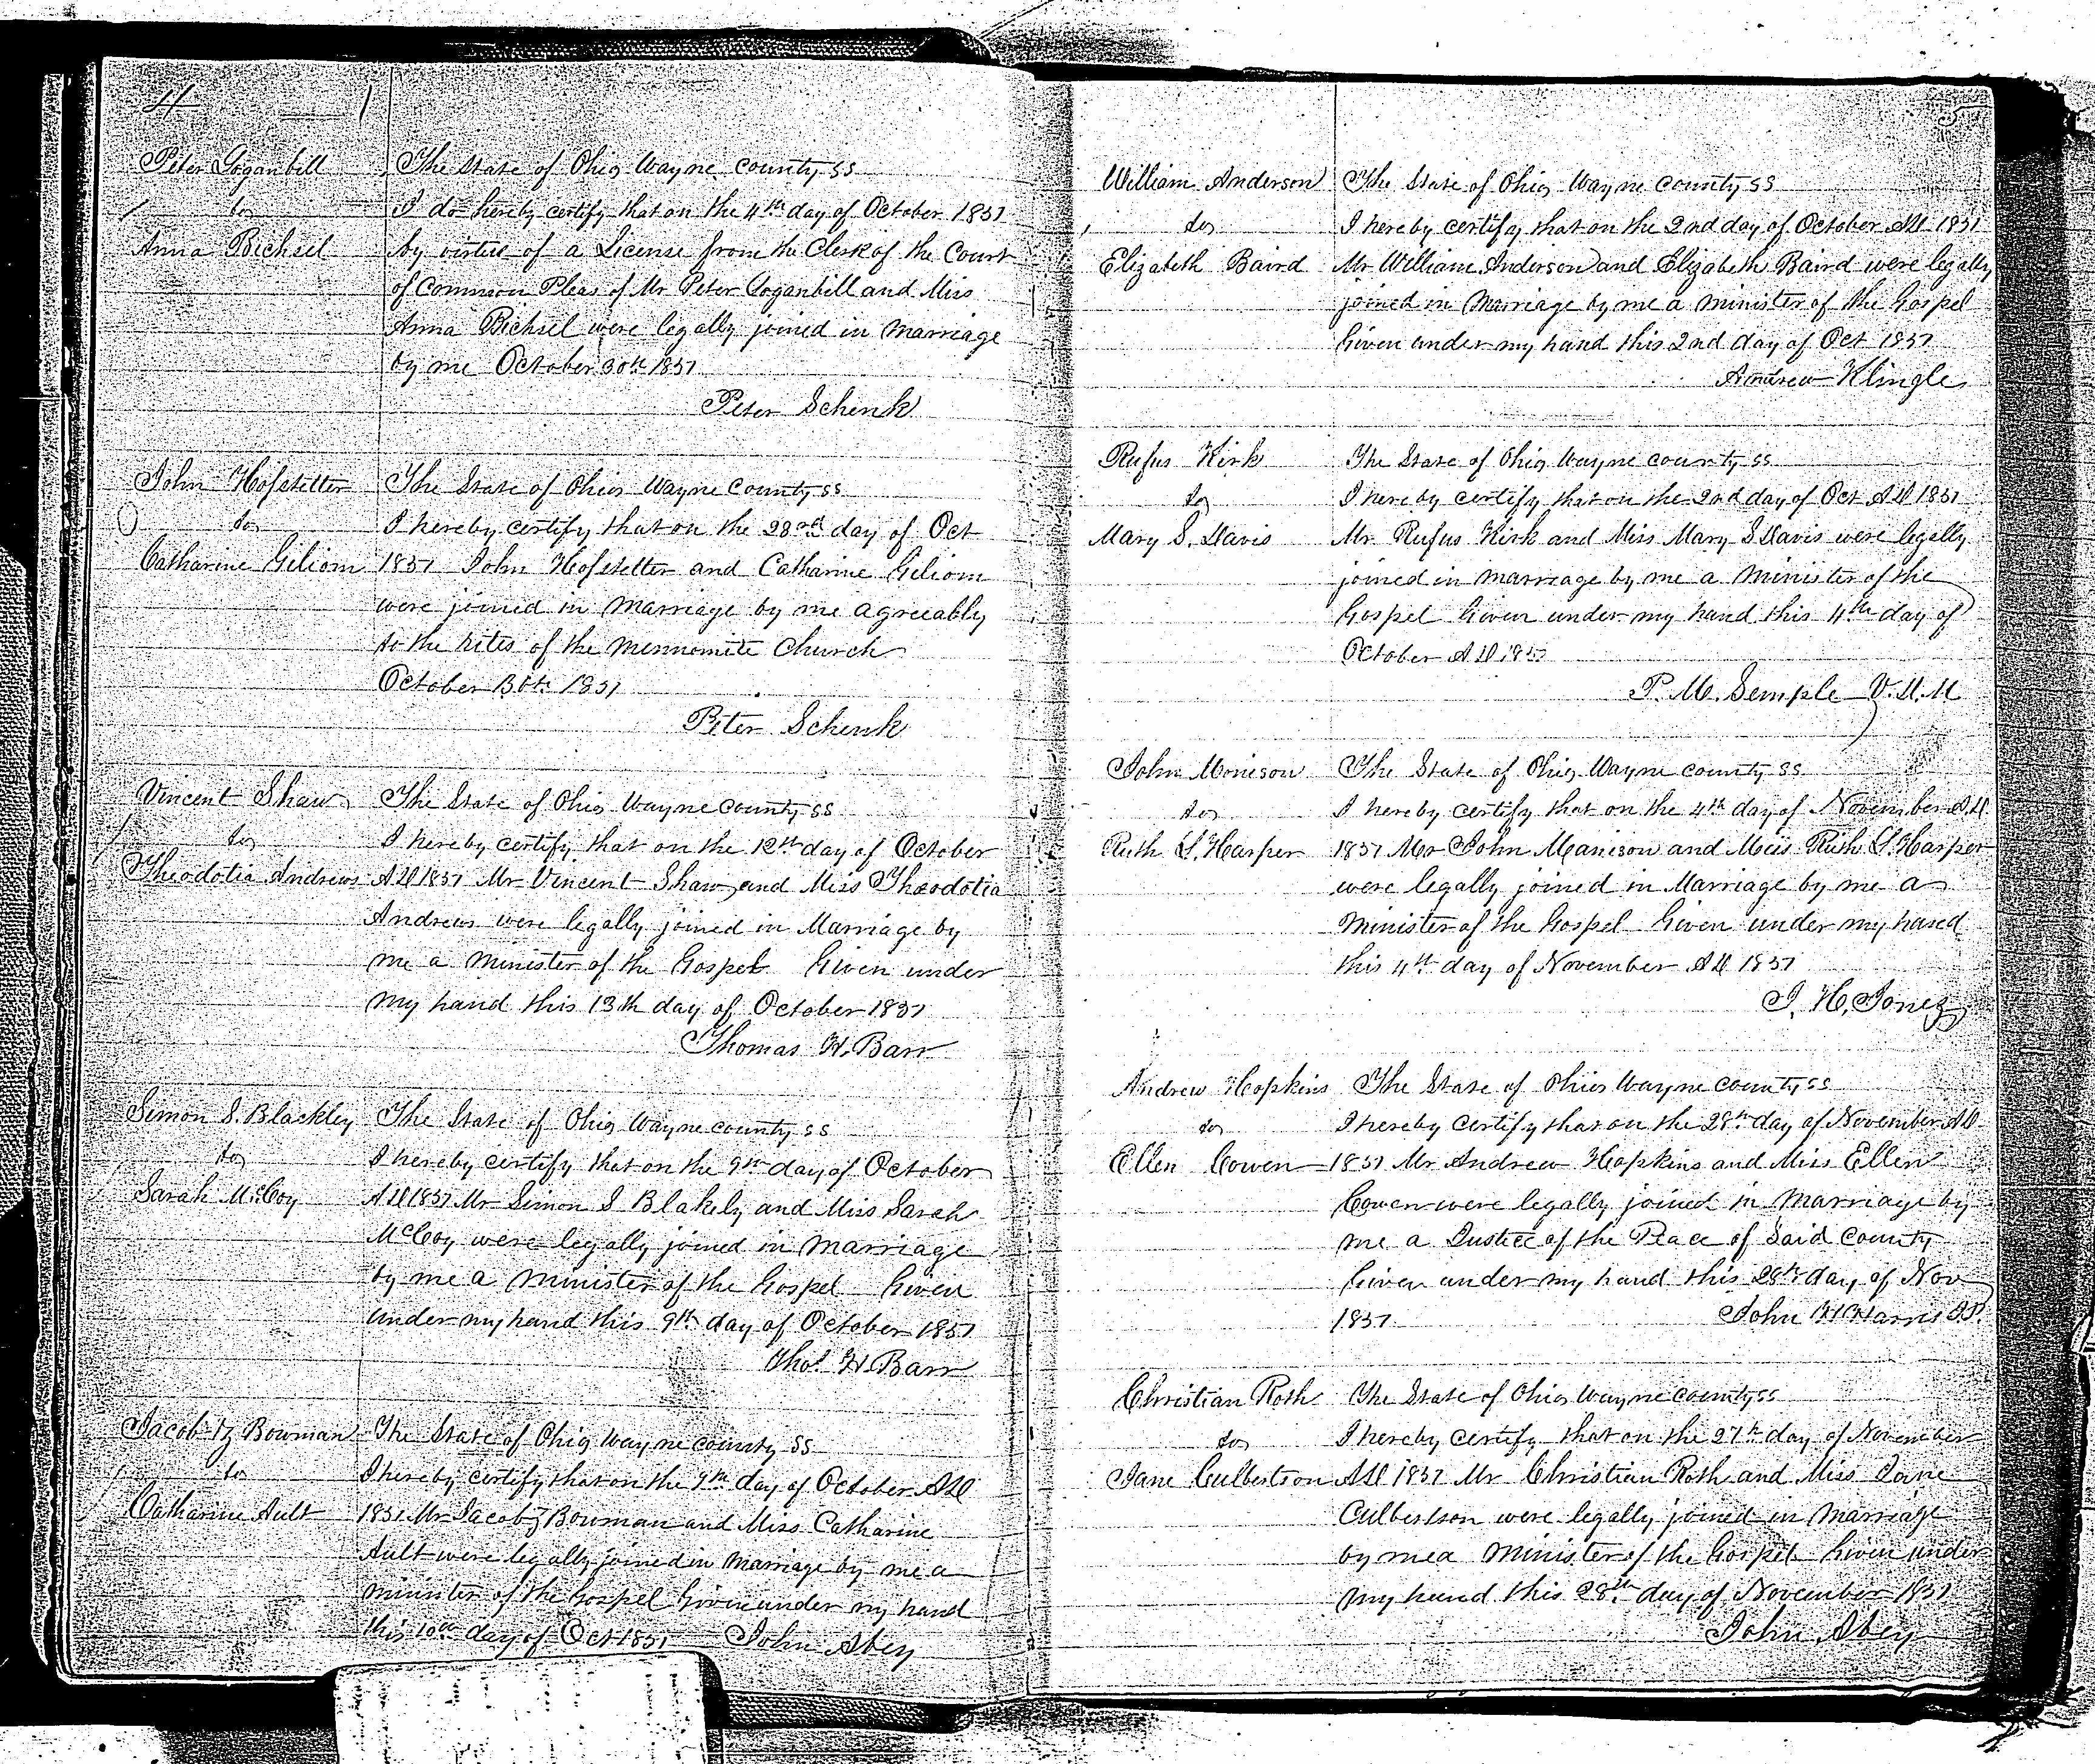 4
Peter Loganbill
to
Anna Bichsel
The State of Ohio Wayne County ss
I do hereby certify that on the 4th day of October 1857
by virtue of a License from the Clerk of the Court
of Common Pleas of Mr Peter Loganbill and Miss
Anna Bichsel were legally joined in Marriage
by me October 30th 1857
Peter Schenk
John Hofstetter
to
Catharine Giliom
The State of Ohio Wayne County ss
I hereby certify that on the 28nd day of Oct
1857 John Hofstetter and Catharine Giliom
were joined in Marriage by me agreeably
to the rites of the Mennomite Church
October 30th 1857
Peter Schenk
Vincent Shaw
to
Theodotia Andrews
The State of Ohio Wayne County ss
I hereby certify that on the 12th day of October
AD 1857 Mr Vincent Shaw and Miss Theodotia
Andrews were legally joined in Marriage by
me a Minister of the Gospel Given under
my hand this 13th day of October 1857
Thomas H. Barr
Simon S. Blackley
to
Sarah McCoy
The State of Ohio Wayne county ss
I hereby certify that on the 9th day of October
AD 1857 Mr Simon S Blakely and Miss Sarah
McCoy were legally joined in Marriage
by me a Minister of the Gospel Given
under my hand this 9th day of October 1857
Thos H. Barr
Jacob tz Bowman
to
Catharine Ault
The State of Ohio Wayne county ss
I hereby certify that on the 9th day of October AD
1857 Mr Jacob tz Bowman and Miss Catharine
Ault were legally joined in Marriage by me a
minister of the Gospel Given under my hand
this 10th day of Oct 1857 John Abey
5
William Anderson
to
Elizabeth Baird
The State of Ohio Wayne county ss
I hereby certify that on the 2nd day of October AD 1857
Mr William Anderson and Elizabeth Baird were legally
joined in Marriage by me a minister of the Gospel
Given under my hand this 2nd day of Oct 1857
Andrew Klingle
Rufus Kirk
to
Mary S. Davis
The State of Ohio Wayne county ss
I hereby certify that on the 2nd day of Oct AD 1857
Mr Rufus Kirk and Miss Mary S Davis were legally
joined in marriage by me a Minister of the
Gospel Given under my hand this 4th day of
October AD 1857
P. M. Semple V.D.M
John Monison
to
Ruth S. Harper
The State of Ohio Wayne county ss
I hereby certify that on the 4th day of November AD
1857 Mr John Manison and Miss Ruth S. Harper
were legally joined in Marriage by me a
Minister of the Gospel Given under my hand
this 4th day of November AD 1857
J. H. Jones
Andrew Hopkins
to
Ellen Cowen
The State of Ohio Wayne county ss
I hereby certify that on the 28th day of November AD
1857 Mr Andrew Hopkins and Miss Ellen
Cowen were legally joined in Marriage by
me a Justice of the Peace of Said County
Given under my hand this 28th day of Nov
1857 John W Harris JP.
Christian Roth
to
Jane Culbertson
The State of Ohio Wayne county ss
I hereby certify that on the 27th day of November
AD 1857 Mr Christian Roth and Miss Jane
Culbertson were legally joined in Marriage
by me a Minister of the Gospel Given under
my hand this 28th day of November 1857
John Abey